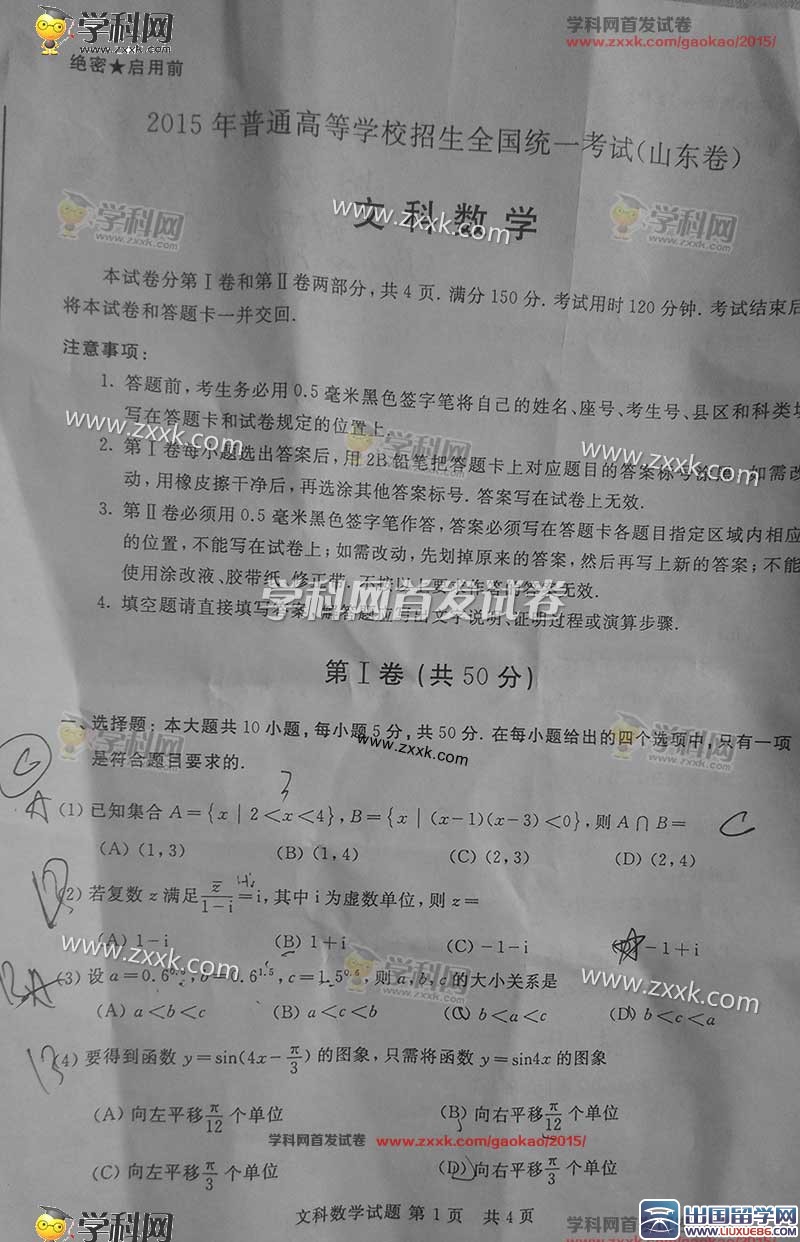 学科网
www.zxxk.com
学科网首发试卷
www.zxxk.com/gaokao/2015/
绝密★启用前
2015年普通高等学校招生全国统一考试(山东卷)
学科网
www.zxxk.com
文科数学
www.zxxk.com
本试卷分第Ⅰ卷和第Ⅱ卷两部分,共4页.满分150分.考试用时120分钟.考试结束后
将本试卷和答题卡一并交回.
注意事项:
1. 答题前,考生务必用0.5毫米黑色签字笔将自己的姓名、座号、考生号、县区和科类填
写在答题卡和试卷规定的位置上.
www.zxxk.com
学科网
www.zxxk.com
2. 第Ⅰ卷每小题选出答案后,用2B铅笔把答题卡上对应题目的答案标号涂黑.如需改
动,用橡皮擦干净后,再选涂其他答案标号.答案写在试卷上无效.
3. 第Ⅱ卷必须用0.5毫米黑色签字笔作答,答案必须写在答题卡各题目指定区域内相应
的位置,不能写在试卷上;如需改动,先划掉原来的答案,然后再写上新的答案;不能
使用涂改液、胶带纸、修正带.不按以上要求作答的答案无效.
学科网首发试卷
4. 填空题请直接填写答案,解答题应写出文字说明、证明过程或演算步骤.
第Ⅰ卷(共50分)
一、选择题:本大题共10小题,每小题5分,共50分.在每小题给出的四个选项中,只有一项
是符合题目要求的.
学科网
www.zxxk.com
www.zxxk.com
学科网
www.zxxk.com
3
A (1) 已知集合A={x|2<x<4},B={x|(x-1)(x-3)<0},则A∩B= C
(A) (1,3) (B) (1,4) (C) (2,3) (D) (2,4)
(2) 若复数z满足z̅/(1-i)=i,其中i为虚数单位,则z=
(A) 1-i (B) 1+i (C) -1-i -1+i
www.zxxk.com
学科网
www.zxxk.com
www.zxxk.com
(3) 设a=0.6^0.6,b=0.6^1.5,c=1.5^0.6,则a,b,c的大小关系是
(A) a<b<c (B) a<c<b (C) b<a<c (D) b<c<a
(4) 要得到函数y=sin(4x-π/3)的图象,只需将函数y=sin4x的图象
(A) 向左平移π/12个单位 (B) 向右平移π/12个单位
学科网首发试卷 www.zxxk.com/gaokao/2015/
(C) 向左平移π/3个单位 (D) 向右平移π/3个单位
文科数学试题 第1页 共4页
学科网
www.zxxk.com
出国留学网
www.liuxue86.com